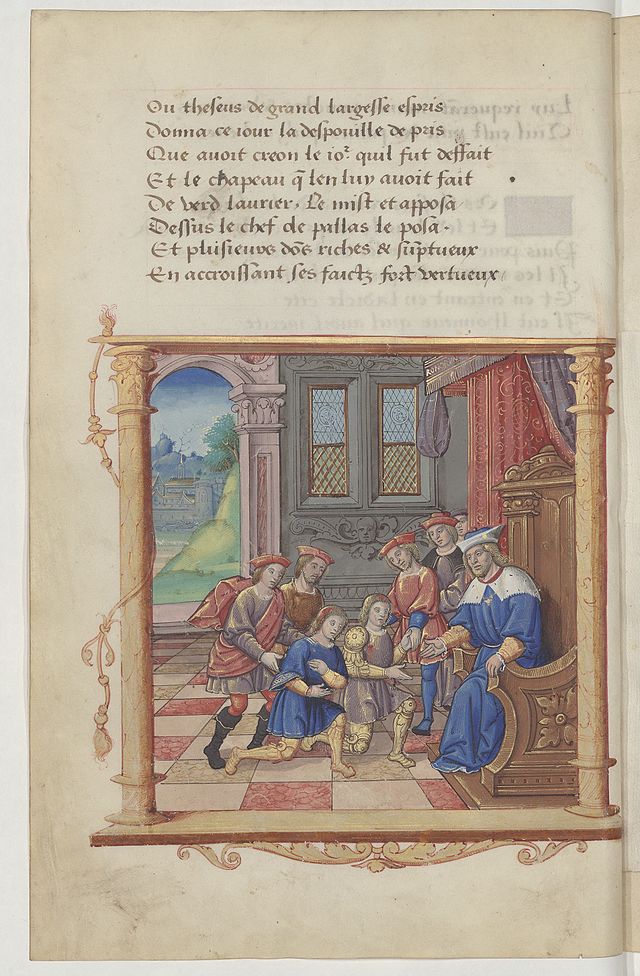 Ou theseus de grand largesse espris
Donna ce iour la despouille de pris
Que avoit creon le ioʳ quil fut deffait
Et le chapeau q̃ len luy avoit fait
De verd laurier, Le mist et apposa
Dessus le chef de pallas le posa.
Et plusieurs dõs riches & sũptueux
En accroissant ses faictz fort vertueux